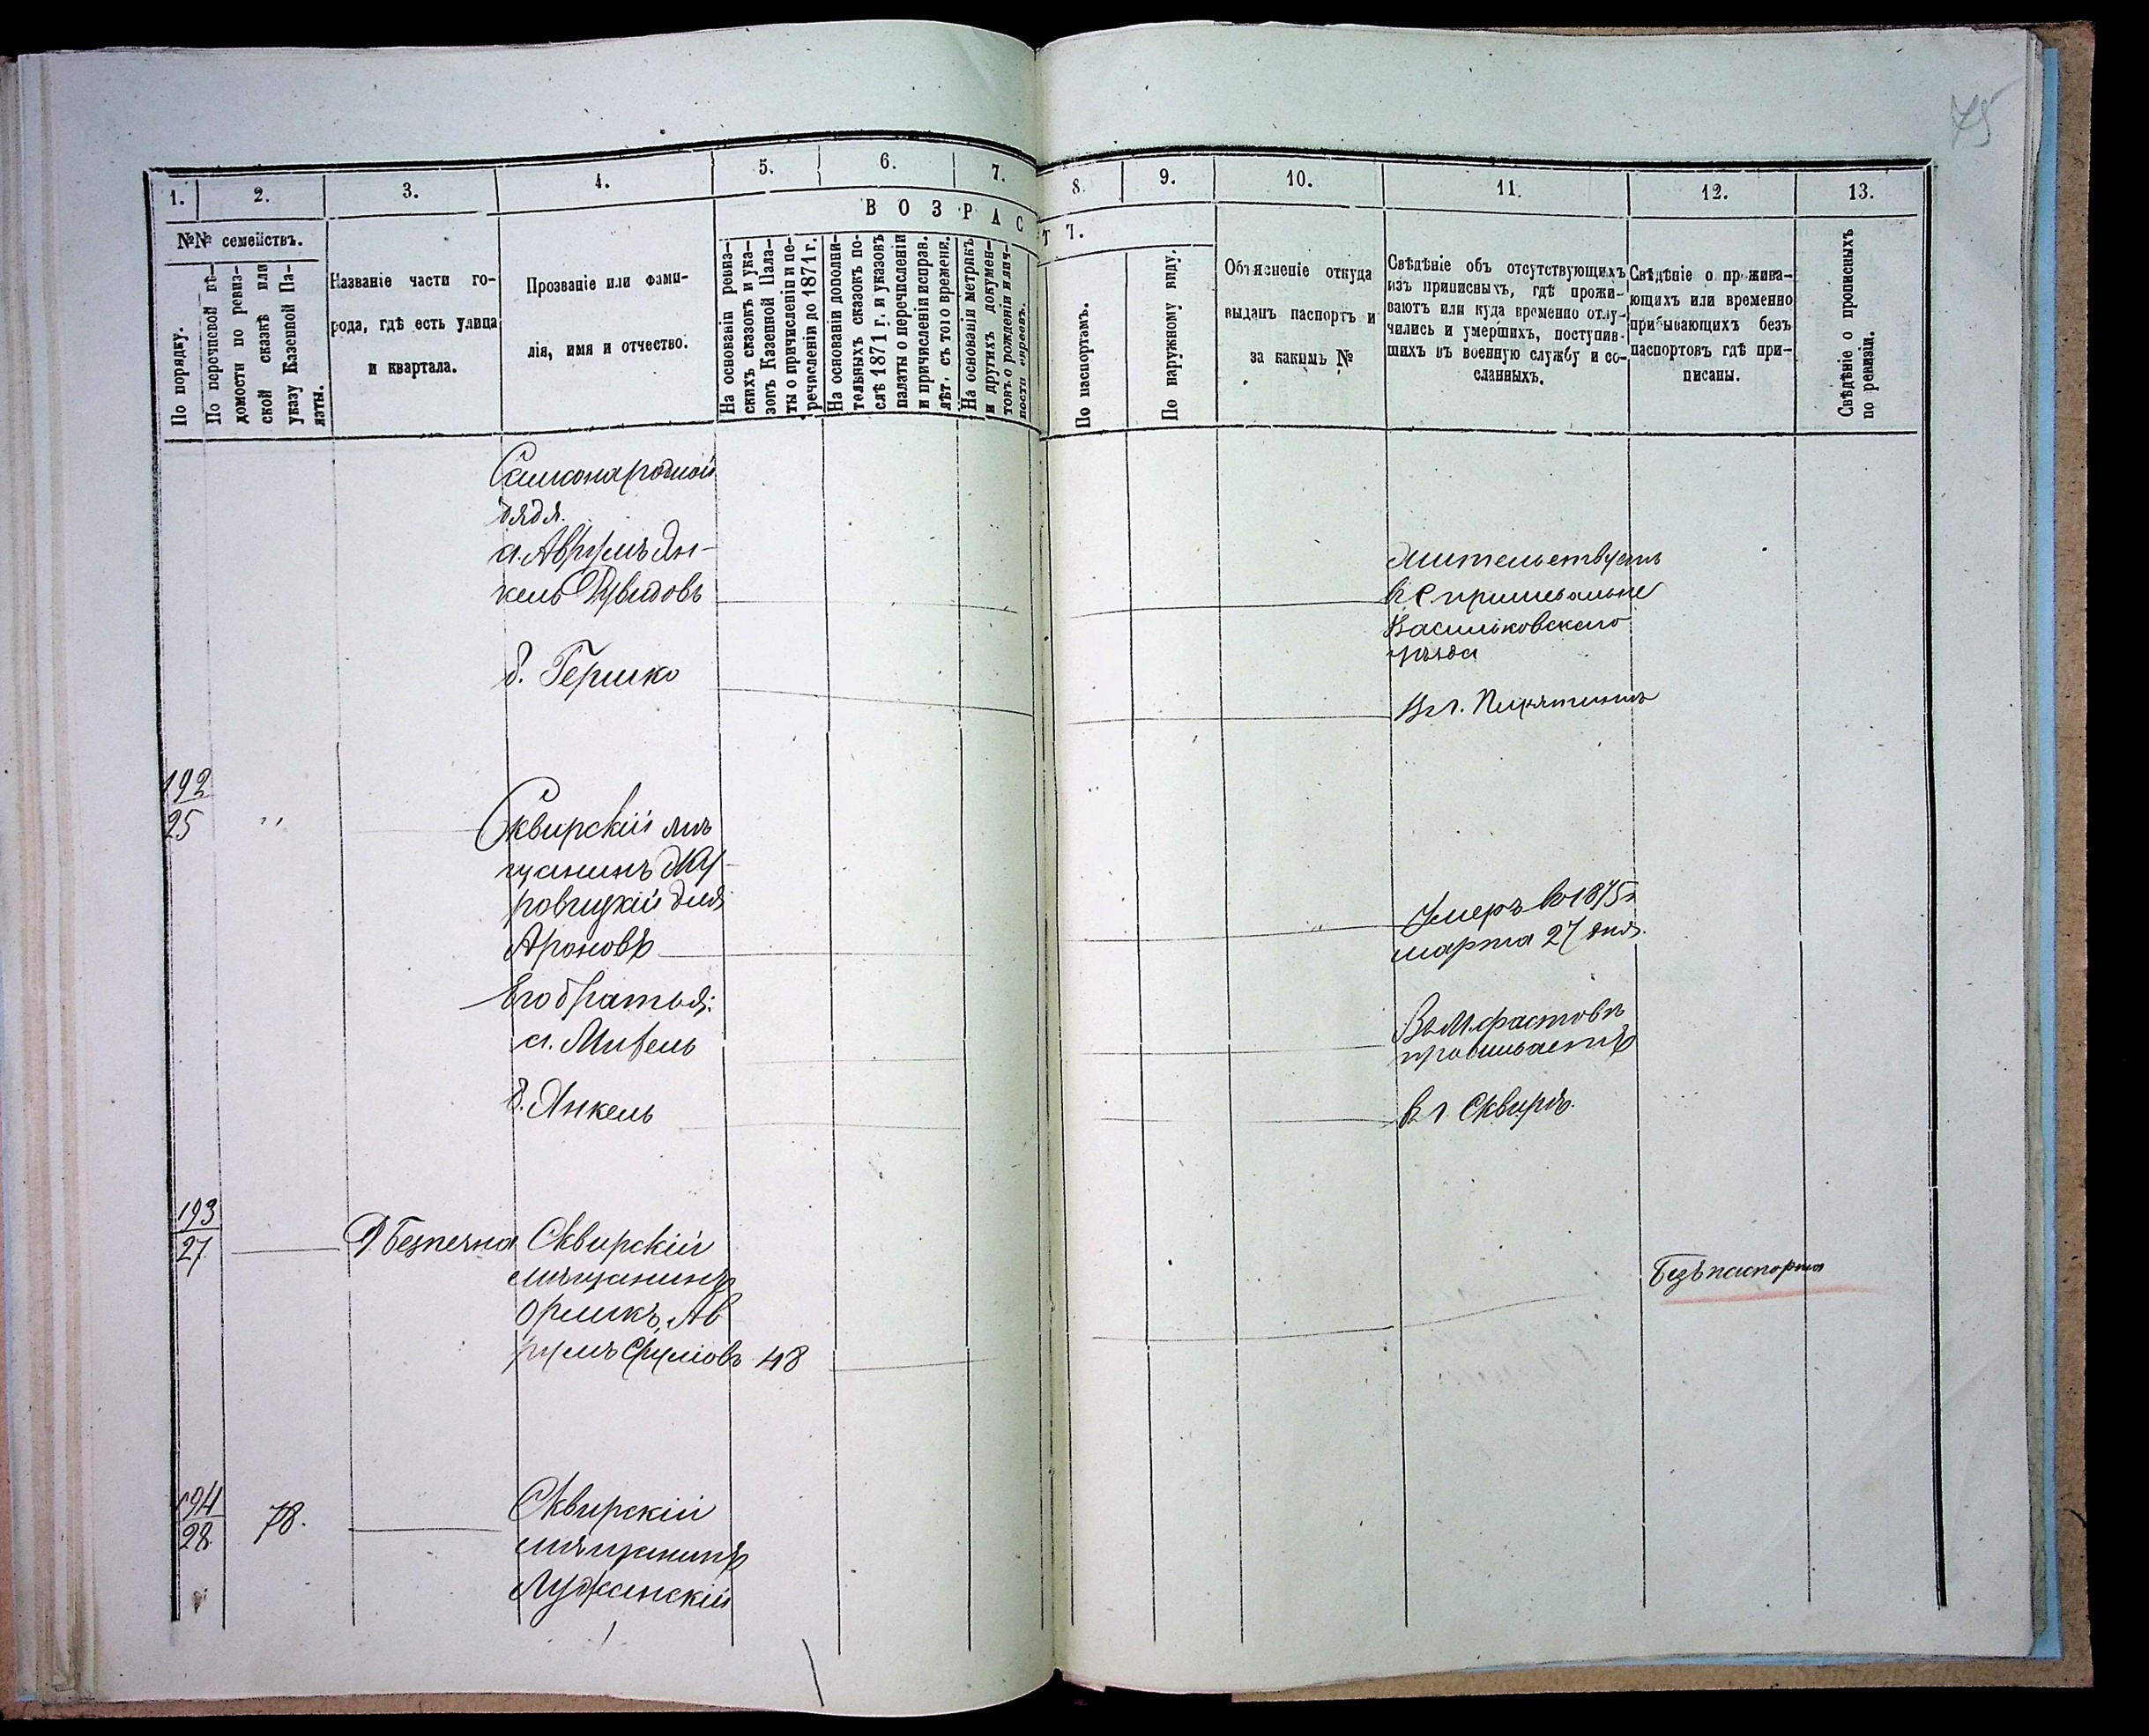 75
1.
2.
3.
4.
5.
6.
7.
8.
9.
10.
11.
12.
13.
№№ семействъ.
ВОЗРАС
Т 7.
По порядку.
По перечневой вѣ-
домости по ревиз-
ской сказкѣ или
указу Казенной Па-
латы.
Названіе части го-
рода, гдѣ есть улица
и квартала.
Прозваніе или фами-
лія, имя и отчество.
На основаніи ревиз-
скихъ сказокъ и ука-
зовъ Казенной Пала-
ты о причисленіи и пе-
речисленіи до 1871 г.
На основаніи дополни-
тельныхъ сказокъ по-
слѣ 1871 г. и указовъ
палаты о перечисленіи
и причисленіи исправ.
лѣт. съ того времени.
На основаніи метрикъ
и другихъ докумен-
товъ о рожденіи и лич-
ности евреевъ.
По паспортамъ.
По наружному виду.
Объясненіе откуда
выданъ паспортъ и
за какимъ №
Свѣдѣніе объ отсутствующихъ
изъ приписныхъ, гдѣ прожи-
ваютъ или куда временно отлу-
чились и умершихъ, поступив-
шихъ въ военную службу и со-
сланныхъ.
Свѣдѣніе о прожива-
ющихъ или временно
прибывающихъ безъ
паспортовъ гдѣ при-
писаны.
Свѣдѣніе о прописныхъ
по ревизіи.
родной
дядя.
а. Аврумъ Ян-
кель Дувидовъ
жительствуетъ
Васильковскаго
уѣзда
б. Гершко
Въ г. Пирятинѣ
192
25
"
Сквирскій мѣ
щанинъ
Ароновъ
Умеръ въ 1875 г
марта 27 дня.
Его братья:
а.
Въ М. Фастовѣ
проживаетъ
б. Янкель
въ г. Сквирѣ.
193
27
Д Безпечна
Сквирскій
мѣщанинъ
Орликъ, Ав
румъ Срулiовъ 48
Безъ паспорта
194
28
78.
Сквирскій
мѣщанинъ
Лужанскій